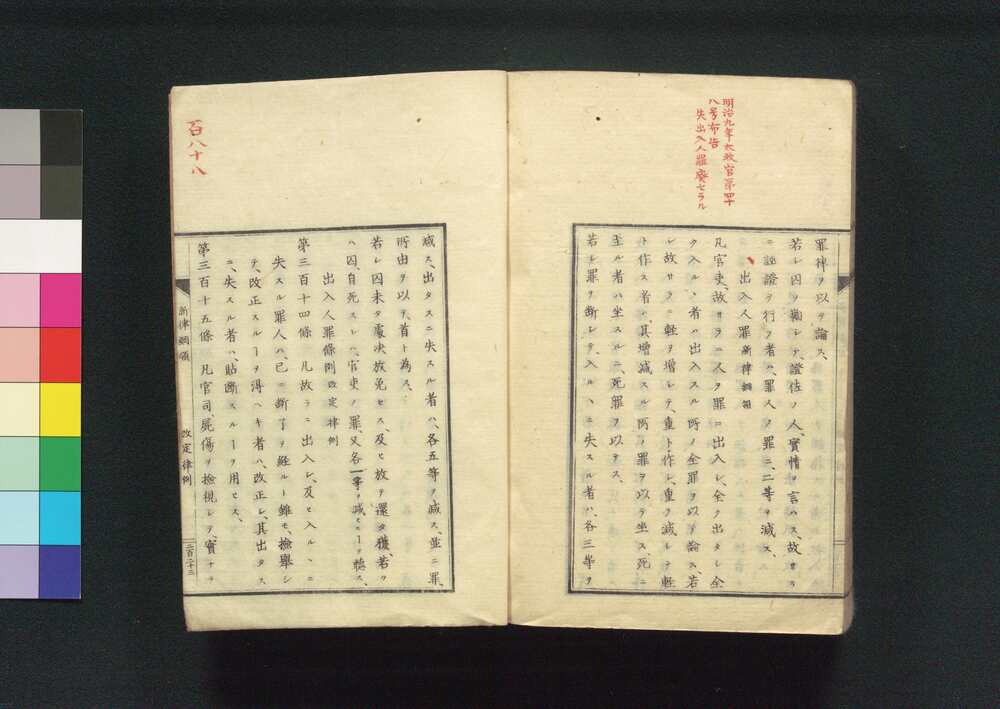 明治九年太政官第四十
八号布告
失出入人罪廃セラル
罪律ヲ以テ論ス、
若シ囚ヲ鞫シテ、證佐ノ人、實情ヲ言ハス、故サラ
ニ誣證ヲ行フ者ハ、罪人ノ罪ニ、二等ヲ減ス、
出入人罪新律綱領
凡官吏、故サラニ人ヲ罪ニ出入シ、全ク出タシ全
ク入ルヽ者ハ出入スル所ノ全罪ヲ以テ論ス、若
シ故サラニ軽ヲ増シテ、重ト作シ、重ヲ減シテ軽
ト作ス者ハ、其増減スル所ノ罪ヲ以テ坐ス、死ニ
至ル者ハ坐スルニ、死罪ヲ以テス、
若シ罪ヲ断シテ、入ルヽニ失スル者ハ、各三等ヲ
百八十八
減ス、出タスニ失スル者ハ、各五等ヲ減ス、並ニ罪
所由ヲ以テ、首ト為ス、
若シ囚未タ處決放免セス、及ヒ放テ還タ獲、若ク
ハ囚、自死スレハ、官吏ノ罪、又各一等ヲ減スヿヲ聴ス、
出入人罪條例改定律例
第三百十四條　凡故ラニ出入シ、及ヒ入ルヽニ
失スル罪人ハ、已ニ断了ヲ経ルト雖モ、撿擧シ
テ、改正スルヿヲ得ヘキ者ハ、改正シ、其出タス
ニ、失スル者ハ、貼断スルヿヲ用ヒス、
第三百十五條　凡官司、屍傷ヲ撿視シテ、實ナラ
新律綱領
改定律例
二百二十三